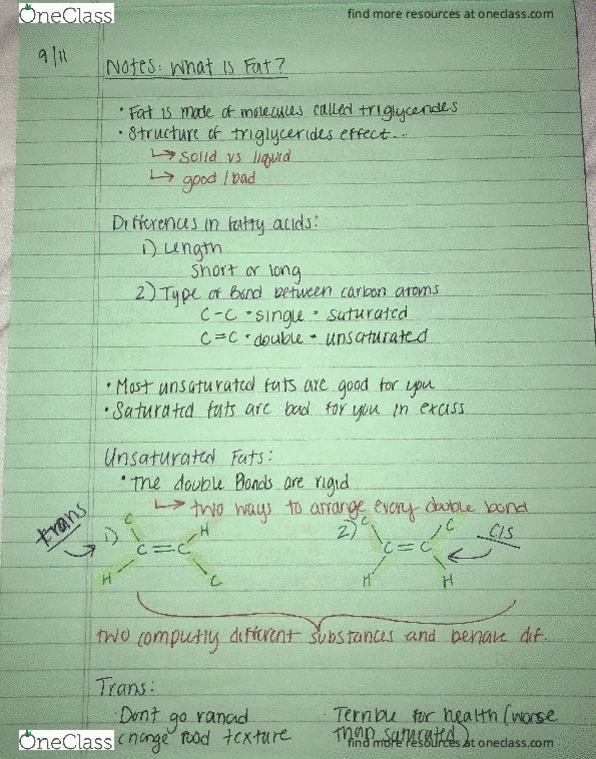 OneClass
find more resources at oneclass.com
9/11
Notes: What is Fat?
• Fat is made of molecules called triglycerides
• Structure of triglycerides effect...
↳ solid vs liquid
↳ good / bad
Differences in fatty acids:
1) Length
short or long
2) Type of Bond between carbon atoms
C-C • single • saturated
C=C • double • unsaturated
• Most unsaturated fats are good for you
• Saturated fats are bad for you in excess
Unsaturated Fats:
• The double Bonds are rigid
↳ two ways to arrange every double bond
trans
1)
C
H
C=C
H
C
2)
C
C
C=C
H
H
cis
two completly different substances and behave dif.
Trans:
· Dont go rancid
· Terrible for health (worse
change food texture
than saturated)
OneClass
find more resources at oneclass.com